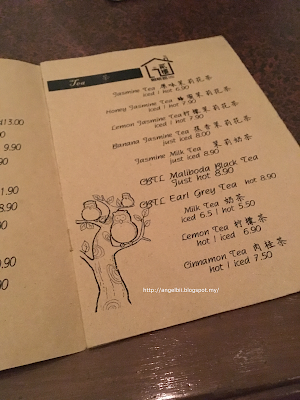 Tea 茶
Jasmine Tea 原味茉莉花茶
iced / hot 6.90
Honey Jasmine Tea 蜂蜜茉莉花茶
iced / hot 7.90
Lemon Jasmine Tea 柠檬茉莉花茶
iced / hot 7.90
Banana Jasmine Tea 蕉香茉莉花茶
just iced 8.00
Jasmine Milk Tea 茉莉奶茶
just iced 8.90
CBTL Maliboda Black Tea
Just hot 8.90
CBTL Earl Grey Tea hot 8.90
Milk Tea 奶茶
iced 6.5 / hot 5.50
Lemon Tea 柠檬茶
hot / iced 6.90
Cinnamon Tea 肉桂茶
hot / iced 7.50
http://angelbit.blogspot.my/
13.00
.90
.90
.90
.90